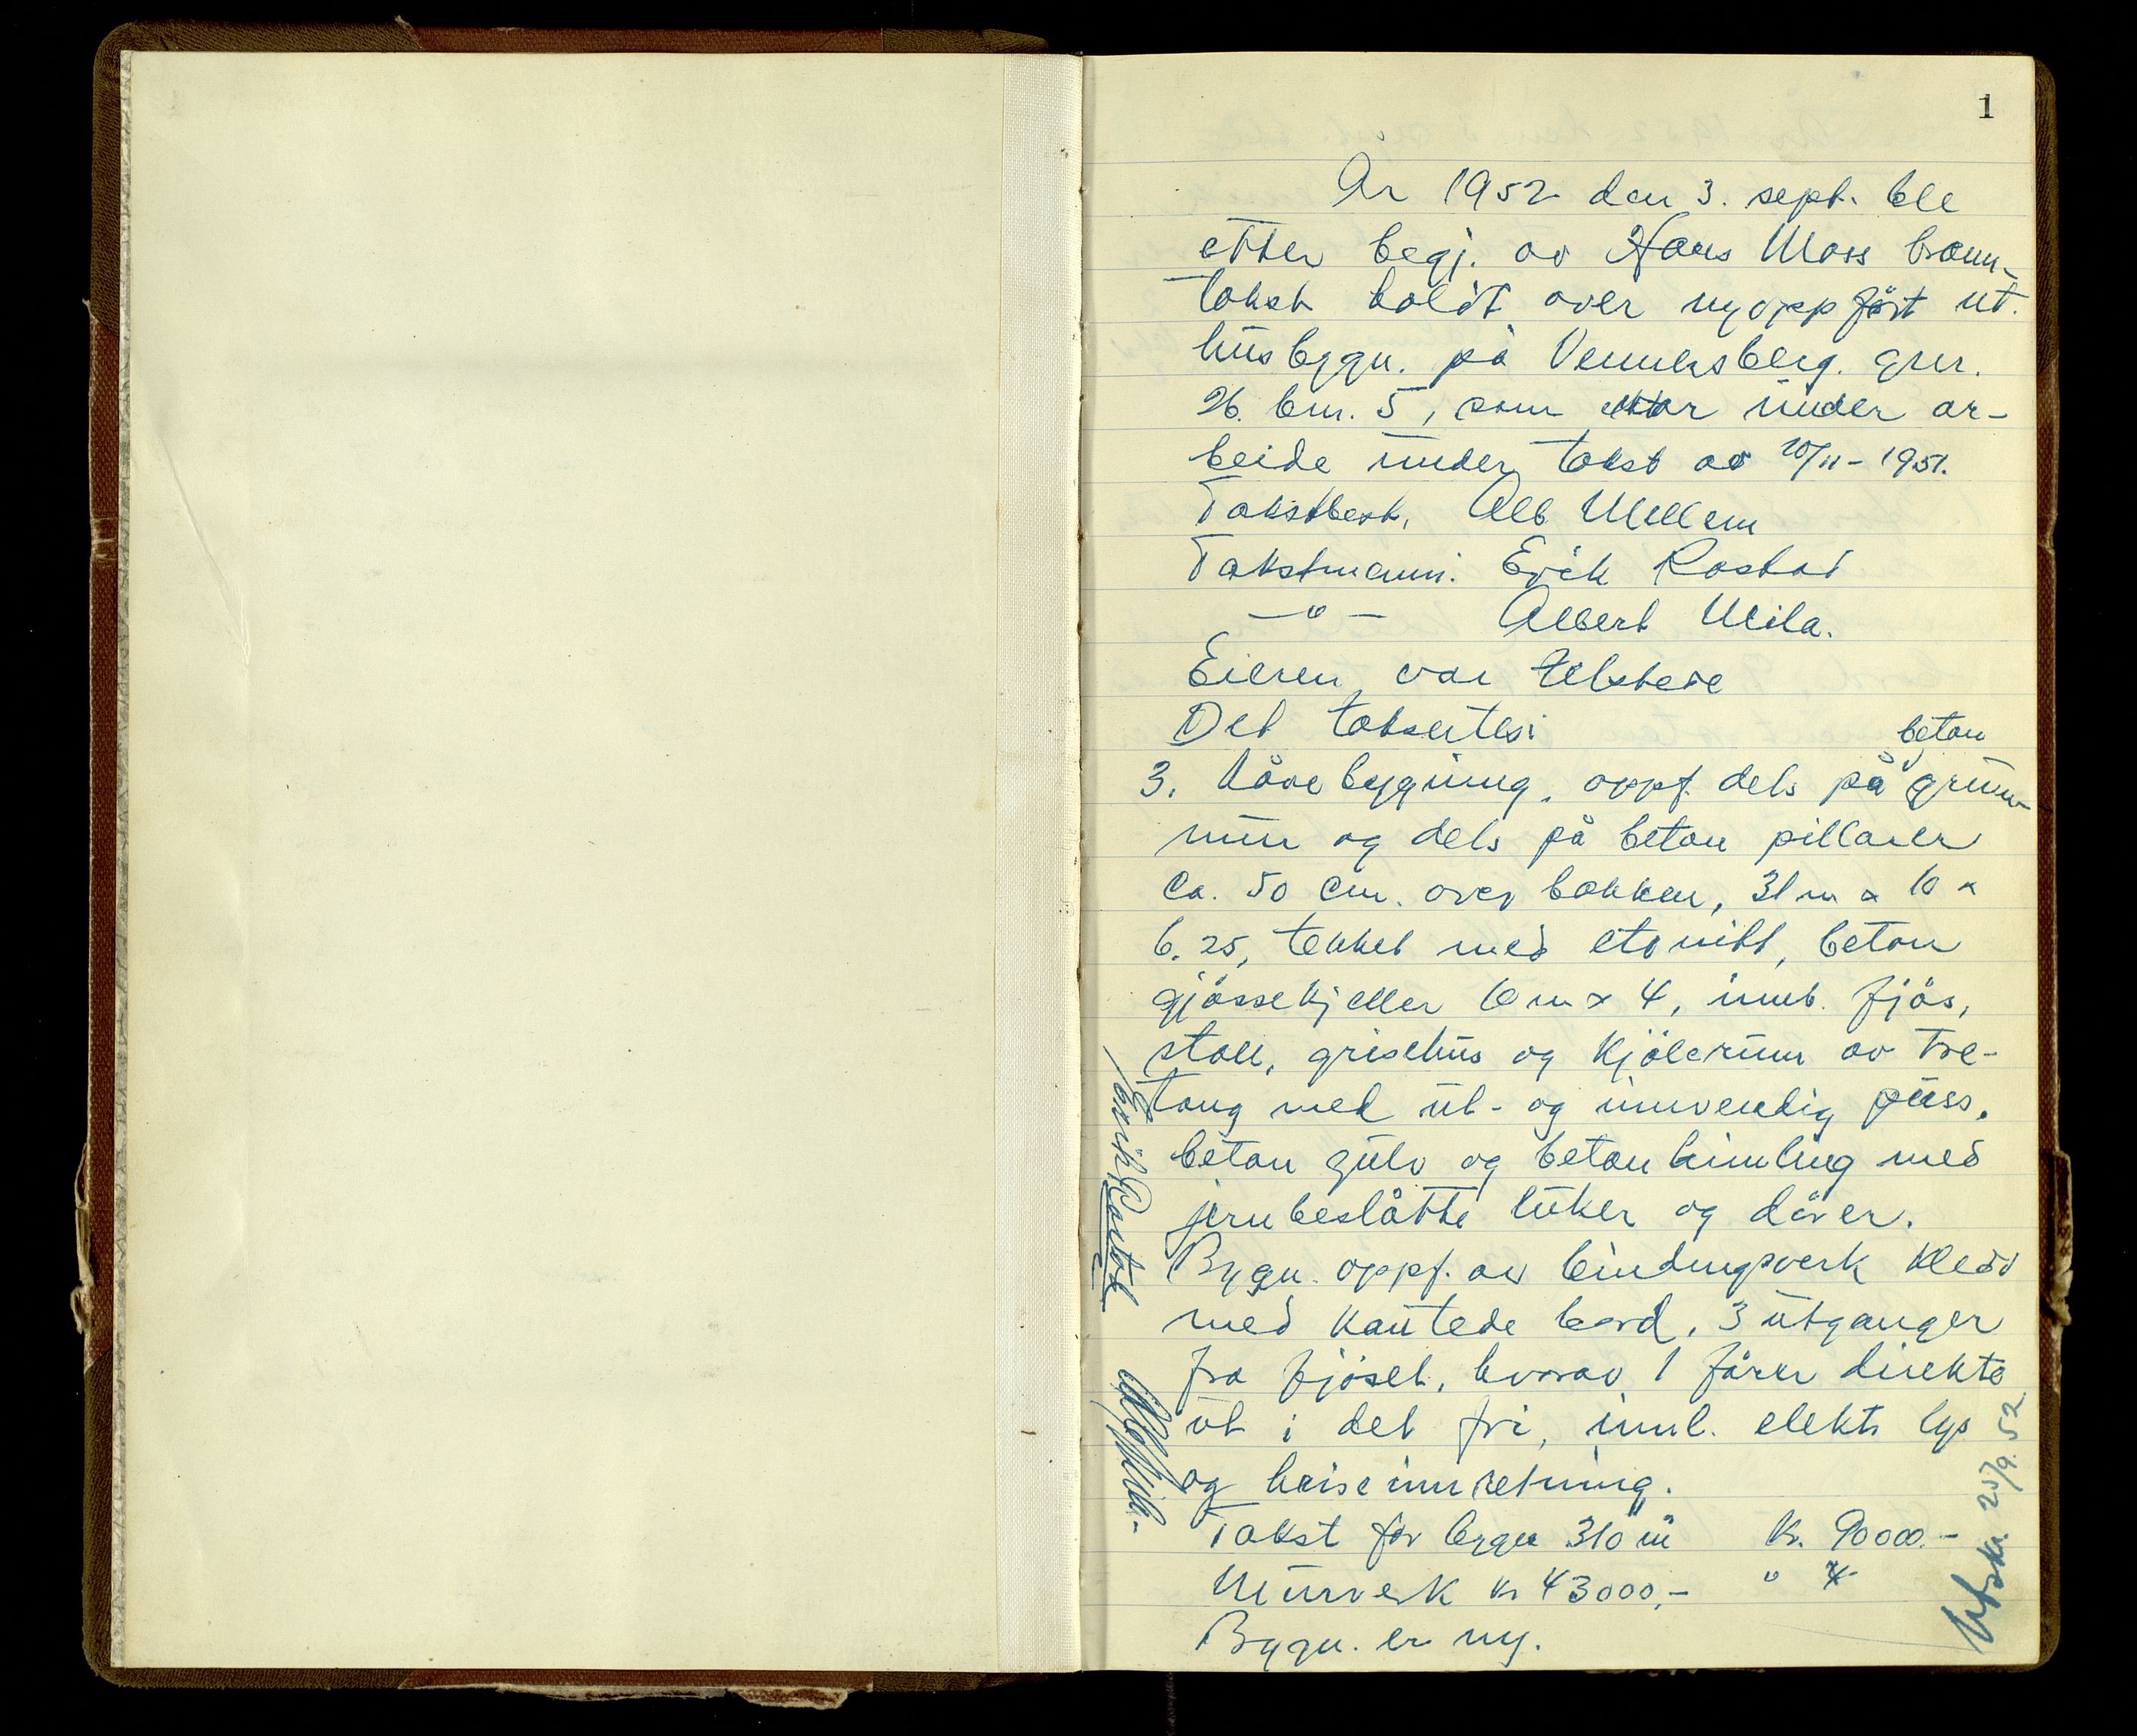 1
År 1952 den 3. sept. ble
etter begj. av Hans Moss brann-
takst holdt over nyoppført ut.
husbygn. på Vennersberg. gnr.
26. bnr. 5, som var under ar-
beide under takst av 20/11-1951.
Takstbest. Alb Mellem
Takstmann: Erik Rostad
—"— Albert Mila.
Eieren var tilstede
Det taksertes:
3. Låvebygning, oppf. dels på beton grunn-
mur og dels på beton pillarer
Ca. 50 cm. over bakken, 31 m x 10 x
6.25, tekket med etonitt, beton
gjøssekjeller 10 m x 4, innb. fjøs,
stall, grisehus og kjølerum av tre-
tong med ut- og innvendig puss.
beton gulv og beton himling med
jernbeslåtte luker og dører.
Bygn. oppf. av bindingsverk kledd
med kantede bord, 3 utganger
fra fjøset, hvorav 1 fører direkte
ut i det fri, innl. elektr lys
og heiseinnretning.
Takst for bygn 310 m Kr. 90000.-
Murverk kr 43000,- "
Bygn. er ny.
Erik Rostad
Alb Mila.
Utskr. 25/9. 52